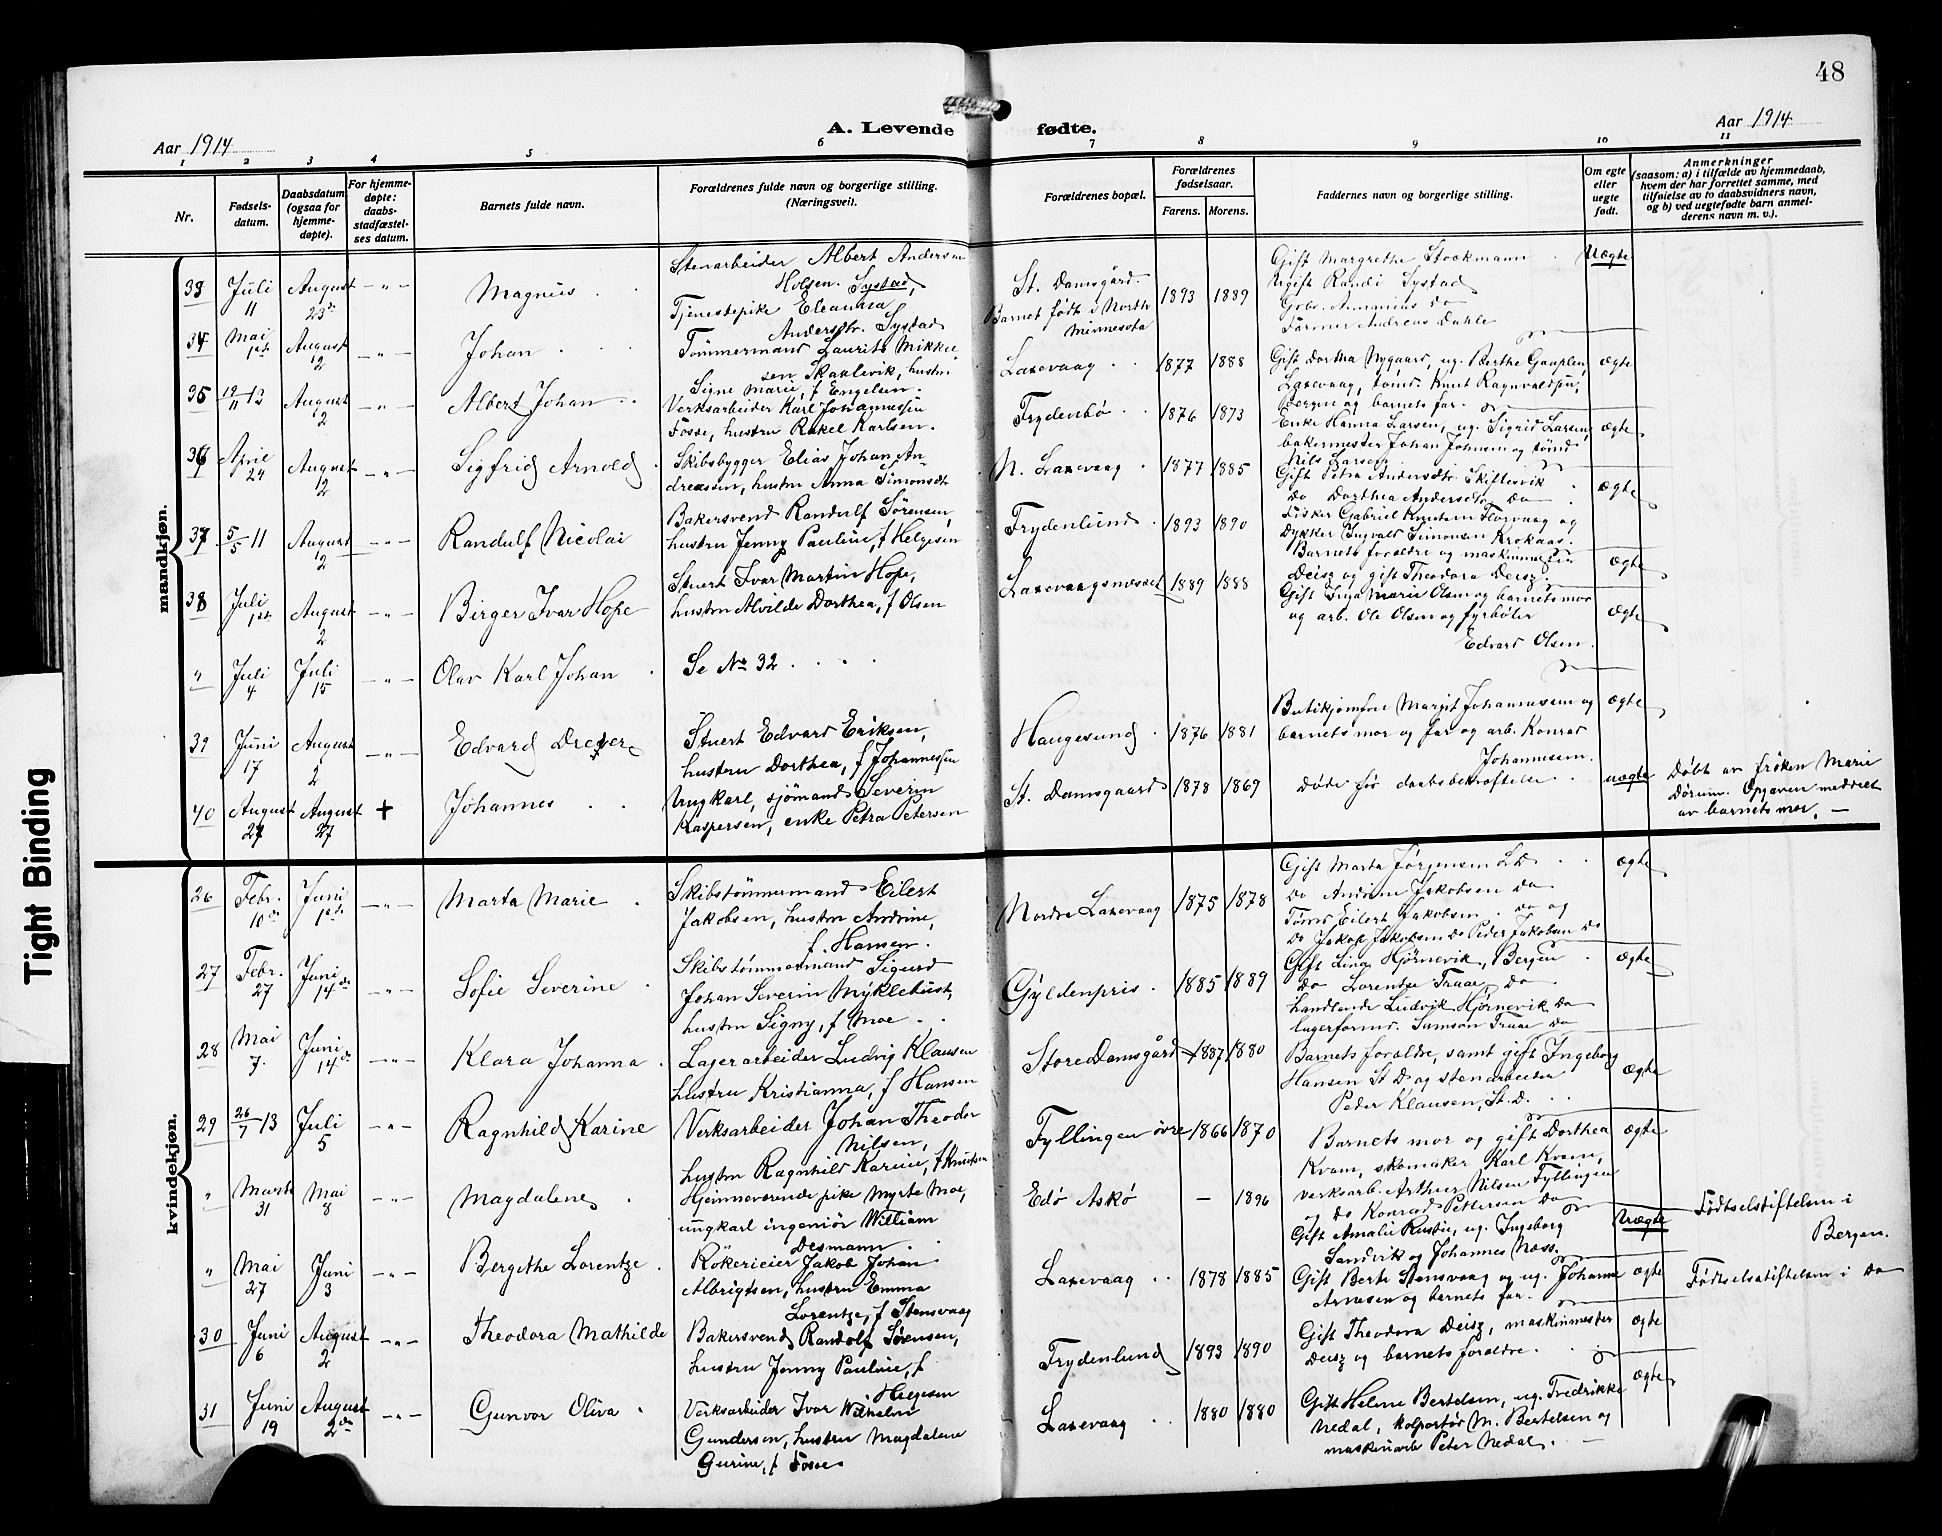 48
Aar 1914
A. Levende fødte.
Aar 1914
1 2 3 4 5 6 7 8 9 10 11
Nr.
Fødsels-
datum.
Daabsdatum
(ogsaa for
hjemme-
døpte).
For hjemme-
døpte:
daabs-
stadfæstel-
ses datum.
Barnets fulde navn.
Forældrenes fulde navn og borgerlige stilling.
(Næringsvei).
Forældrenes bopæl.
Forældrenes
fødselsaar.
Farens. Morens.
Faddernes navn og borgerlige stilling.
Om egte
eller
uegte
født.
Anmerkninger
(saasom: a) i tilfælde av hjemmedaab,
hvem der har forrettet samme, med
tilføielse av to daabsvidners navn,
og b) ved uegtefødte barn anmel-
derens navn m. v.).
mandkjøn.
33 Juli 11 August 23de -"- Magnus
Stenarbeider Albert Andersen
Holsen. Systad,
Tjenestepike Eleanna
Andersdtr. Systad
St. Damsgård.
Barnet født i North
Minnesota
1893 1889
Gift Margrethe Stockmann
Ugift Randi Systad
Gbr. Ammnias do
Farmer Andreas Dahle
Uægte
34 Mai 1ste August 2 -"- Johan
Tømmermand Laurits Mikkel
sen Skaalevik, hustru
Signe Marie, f Engelsen.
Laxevaag 1877 1888
Gift Dortha Nygaard, ug. Berthe Gauplen,
Laxevaag, tømd. Knut Ragnvaldsen,
Bergen og barnets far.
ægte
35 19/11 12 August 2 -"- Albert Johan
Verksarbeider Karl Johannessen
Fosse, hustru Rakel Karlsen.
Frydenbø 1876 1873
Enke Hanna Larsen, ug. Sigrid Larsen,
bakermester Johan Johnsen og tømd
Nils Larsen
ægte
36 April 24 August 2 -"- Sigfrid Arnold
Skibsbygger Elias Johan An-
dreassen, hustru Anna Simonsdt
N. Laxevaag 1877 1885
Gift Petra Andersdtr. Skiftesvik
Do Dorthea Andersdtr do
Fisker Gabriel Knutsen Florvaag og
Dykker Ingvald Simonsen Krokaas.
ægte
37 5/5 11 August 2 -"- Randulf Nicolai
Bakersvend Randulf Sörensen,
hustru Jenny Pauline, f Helgesen
Frydenlund 1893 1890
Barnets forældre og maskinmester
Deisz og gift Theodora Deisz.
ægte
38 Juli 1ste August 2 -"- Birger Ivar Hope
Stuert Ivar Martin Hope,
hustru Alvilde Dorthea, f Olsen
Laxevaagsnæsset 1889 1888
Gift Inga Marie Olsen og barnets mor
og arb. Ole Olsen og fyrbøter
Edvard Olsen.
ægte
" Juli 4 Juli 15 -"- Olav Karl Johan
Se No 32
39 Juni 17 August 2 -"- Edvard Dreyer
Stuert Edvard Eriksen,
hustru Dorthea, f Johannessen
Haugesund 1876 1881
Butikjomfru Margit Johannessen og
barnets mor og far og arb. Konrad
Johannesen.
ægte
40 August 27 August 27 + Johannes
Ungkarl, sjömand Severin
Kaspersen, enke Petra Petersen
St. Damsgaard 1878 1869
døde før daabsbekræftelse
uægte
Döbt av frøken Marie
Dörum. Opgaven meddelt
av barnets mor. —
kvindekjøn.
26 Febr. 10de Juni 1ste -"- Marta Marie
Skibstømmermand Eilert
Jakobsen, hustru Andrine,
f. Hansen.
Nordre Laxevaag 1875 1878
Gift Marta Jørgensen Ld
Do Andrine Jakobsen do
Tømd Eilert Jakobsen do og
Do Jakob Jakobsen do Peder Jakobsen do
ægte
27 Febr. 27 Juni 14de -"- Sofie Severine
Skibstømmermand Sigurd
Johan Severin Myklebust,
hustru Signy, f Moe
Gyldenpris 1885 1889
Gift Lina Hjørnevik, Bergen
Do Lorentse Traae, do
Handlende Ludvik Hjørnevik do
lagerformd. Samson Traae do
ægte
28 Mai 7. Juni 14de -"- Klara Johanna
Lagerarbeider Ludvig Klausen
hustru Kristianna, f Hansen
Store Damsgård 1887 1880
Barnets forældre, samt gift Ingeborg
Hansen St D og stenarbeider
Peder Klausen, St. D.
ægte
29 26/7 13 Juli 5 -"- Ragnhild Karine
Verksarbeider Johan Theodor
Nilsen,
hustru Ragnhild Karine, f Knutsen
Fyllingen øvre 1866 1870
Barnets mor og gift Dorthea
Kvam, skomaker Karl Kvam,
verksarb. Arthur Nilsen Fyllingen
og do Konrad Pettersen do
ægte
" Marts 31 Mai 8 -"- Magdalene
Hjemmeværende pike Myrte Moe,
ungkarl ingeniör William
Desmann
Edø Askø - 1896
Gift Amalie Rustie, ug. Ingeborg
Sandvik og Johannes Næss.
Uægte
Födtselstiftelsen i
Bergen.
" Mai 27 Juni 3 -"- Bergethe Lorentze
Rökerieier Jakob Johan
Albrigtsen, hustru Emma
Lorentze, f Stensvaag
Laxevaag 1878 1885
Gift Berte Stensvaag og ug. Johanne
Arnesen og barnets far.
ægte
Födtselsstiftelsen i do
30 Juni 6 August 2 -"- Theodora Mathilde
Bakersvend Randolf Sørensen,
hustru Jenny Pauline, f
Helgesen
Frydenlund 1893 1890
Gift Theodora Deisz, maskinmester
Deisz og barnets forældre.
ægte
31 Juni 19 August 2de -"- Gunvor Oliva
Verksarbeider Ivar Wilhelm
Gundersen, hustru Magdalene
Gurine, f Fosse
Laxevaag 1880 1880
Gift Helene Bertelsen, ug. Fredrikke
Nedal, kolportør M. Bertelsen og
maskinarb Peter Nedal.
ægte
Tight Binding